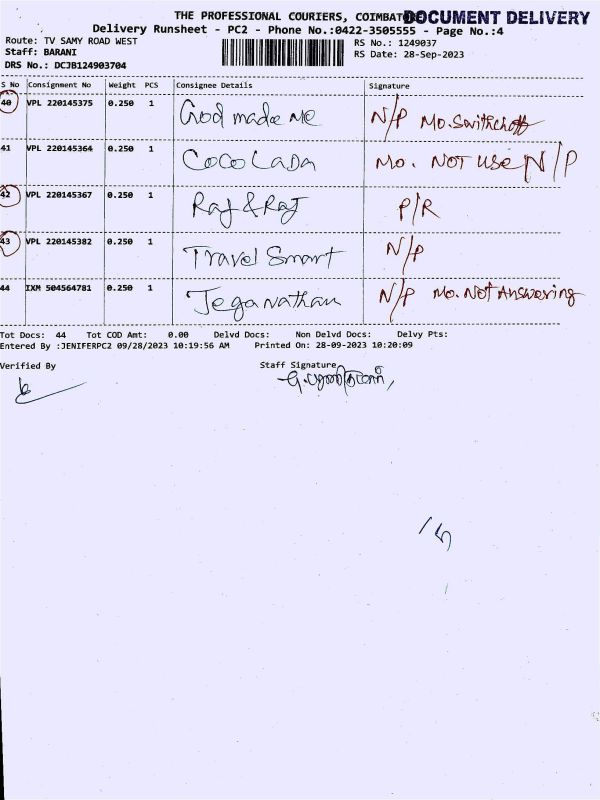 THE PROFESSIONAL COURIERS, COIMBAT
DOCUMENT DELIVERY
Delivery Runsheet - PC2 - Phone No.:0422-3505555 - Page No.:4
Route: TV SAMY ROAD WEST
RS No.: 1249037
Staff: BARANI
RS Date: 28-Sep-2023
DRS No.: DCJB124903704
S No Consignment No Weight PCS Consignee Details Signature
40 VPL 220145375 0.250 1 God made me N/P Mo. Switchoff
41 VPL 220145364 0.250 1 COCO LADA Mo. NOT USE N/P
42 VPL 220145367 0.250 1 Raj & Raj P/R
43 VPL 220145382 0.250 1 Travel Smart N/P
44 IXM 504564781 0.250 1 Jeganathan N/P Mo. Not Answering
Tot Docs: 44 Tot COD Amt: 0.00 Delvd Docs: Non Delvd Docs: Delvy Pts:
Entered By :JENIFERPC2 09/28/2023 10:19:56 AM Printed On: 28-09-2023 10:20:09
Verified By Staff Signature